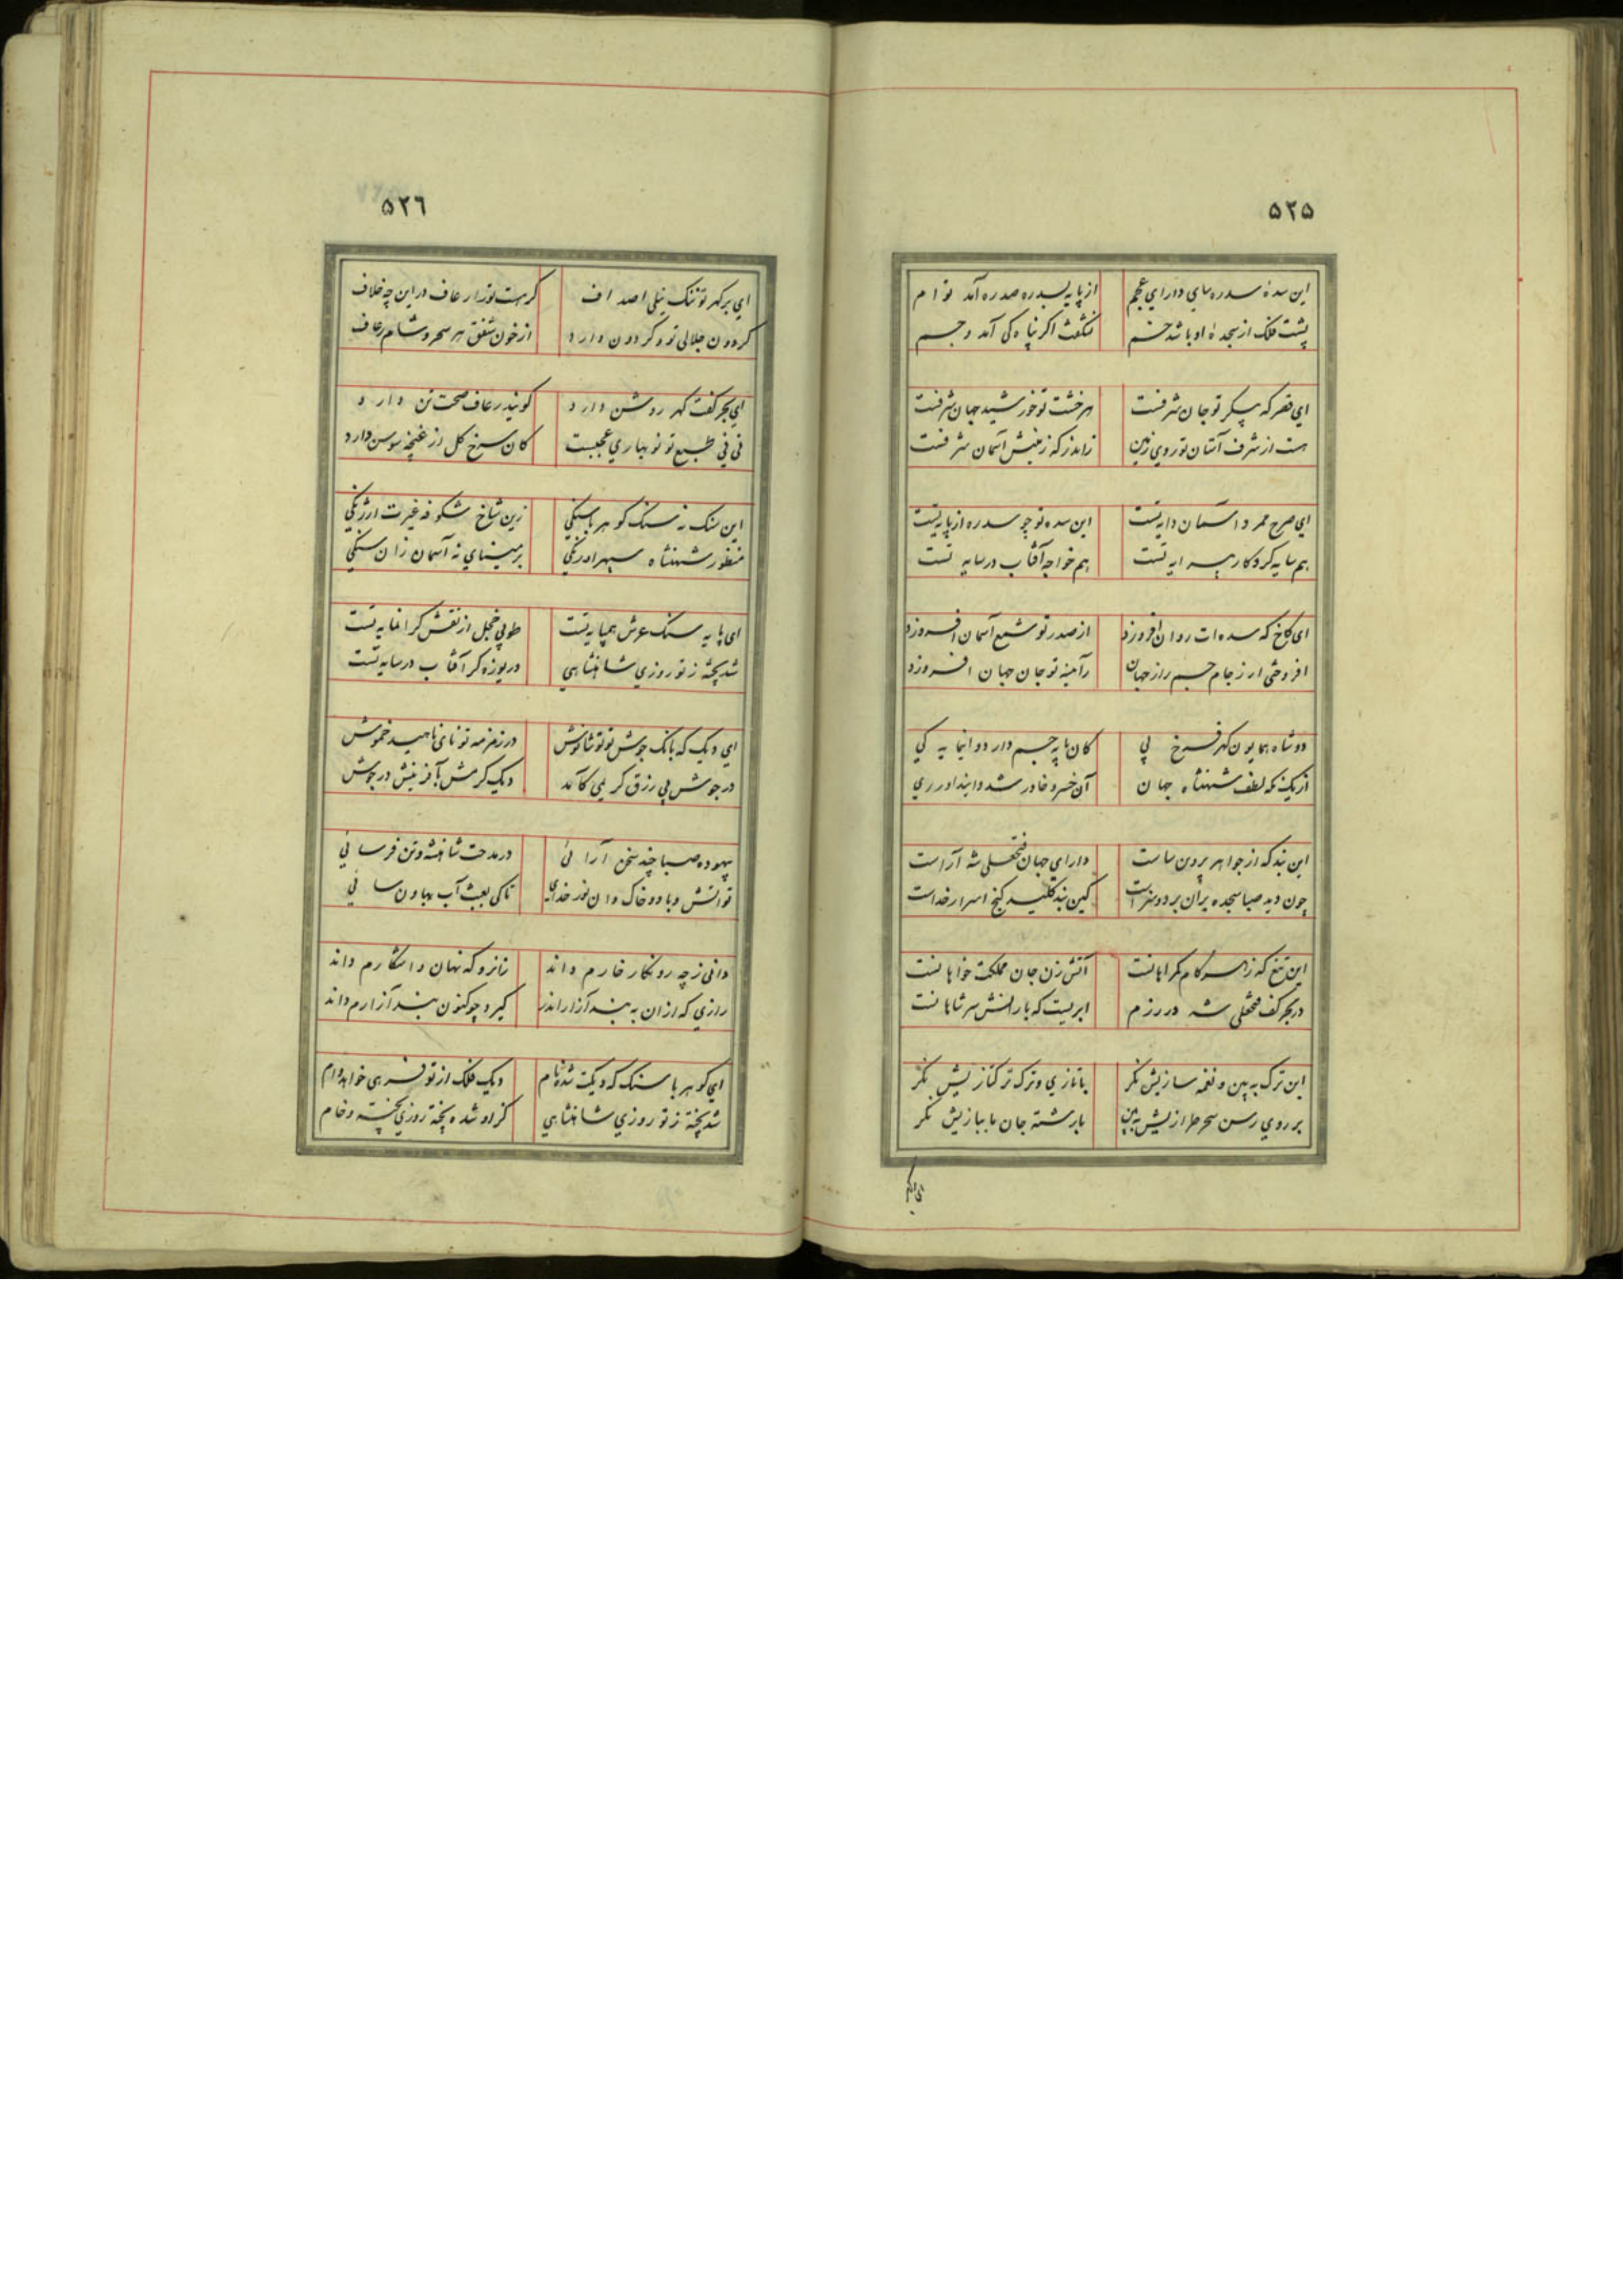 ۵۲۵
این سدهٔ سدره سای دارای عجم از پایه بسدره صدره آمد توام
پشت فلک از سجدهٔ او باشد خم نشگفت اگر پناه کی آمد و جم
ای قصر که پیکر تو جان شرفست هر خشت تو خورشید جهان شرفست
هست از شرف آستان تو روی زمین زاندر که زمینش آسمان شرفست
ای صرح ممرد آسمان دایه تست این سده تو چو سدره از پایه تست
هم سایه کردکار پیرایه تست هم خواجه آفتاب در سایه تست
ای کاخ که سده ات روان افروزد از صدر تو شمع آسمان افروزد
افروختی ار ز جام جم راز جهان زآمینه تو جان جهان افروزد
دو شاه همایون کهر فرخ پی کان پایه جم دارد و اینمایه کی
از یک نکه لطف شهنشاه جهان آن خسرو خاور شد و این داور ری
این بند که از جواهر پروین ساست دارای جهان فتحعلی شه آراست
چون دید صبا سجده بر آن برد و سزاست کین بند کلید کنج اسرار خداست
این تیغ که زهر کام کمراهانست آتش زن جان مملکت خواهانست
در بحر کف فتحعلی شه در رزم ابریست که بارانش سر شاهانست
این ترک به بین و نغمه سازیش نکر با تازی و ترک ترکتازیش نکر
بر روی رسن سحر طرازیش به بین با رشته جان ما ببازیش نکر
۵۲٦
ای بر کهر تو تنک نیلی اصداف کر هست تو را رعاف در این چه خلاف
کردون جلالی تو و کردون دارد از خون شفق هر سحر و شام رعاف
ای بحر کفت کهر روشن دارد کویند رعاف صحت تن دارد
نی نی طبع تو نو بهاری عجبست کان سرخ کل از غنچه سوسن دارد
این سنک نه سنک کوهر با سنکی زین شاخ شکوفه غیرت ارژنکی
منظور شهنشاه سپهر اورنکی بر مینای نه آسمان زان سنکی
ای پایه سنک عرش همپایه تست طوبی خجل از نقش کرانمایه تست
شد پخته ز تو روزی شاهنشاهی دریوزه کر آفتاب در سایه تست
ای دیک که بانک جوش تو نوشانوش در زمزمه تو نای ناهید خموش
در جوش پی رزق کریمی کآمد دیک کرمش بآفرینش در جوش
بیهوده صبا چند سخن آرائی در مدحت شاهنشه و تن فرسائی
تو آتش و باد و خاک و آن نور خدای تا کی بعبث آب بهاون سائی
دانی ز چه رو نکار خارم داند زانرو که نهان و آشکارم داند
رازی که از آن به بند آزار اندر کیرد چو کنون بند آزارم داند
ای کوهر با سنک که دیکت شده نام دیک فلک از تو فرهی خواهد وام
شد پخته ز تو روزی شاهنشاهی کز او شده پخته روزی پخته و خام